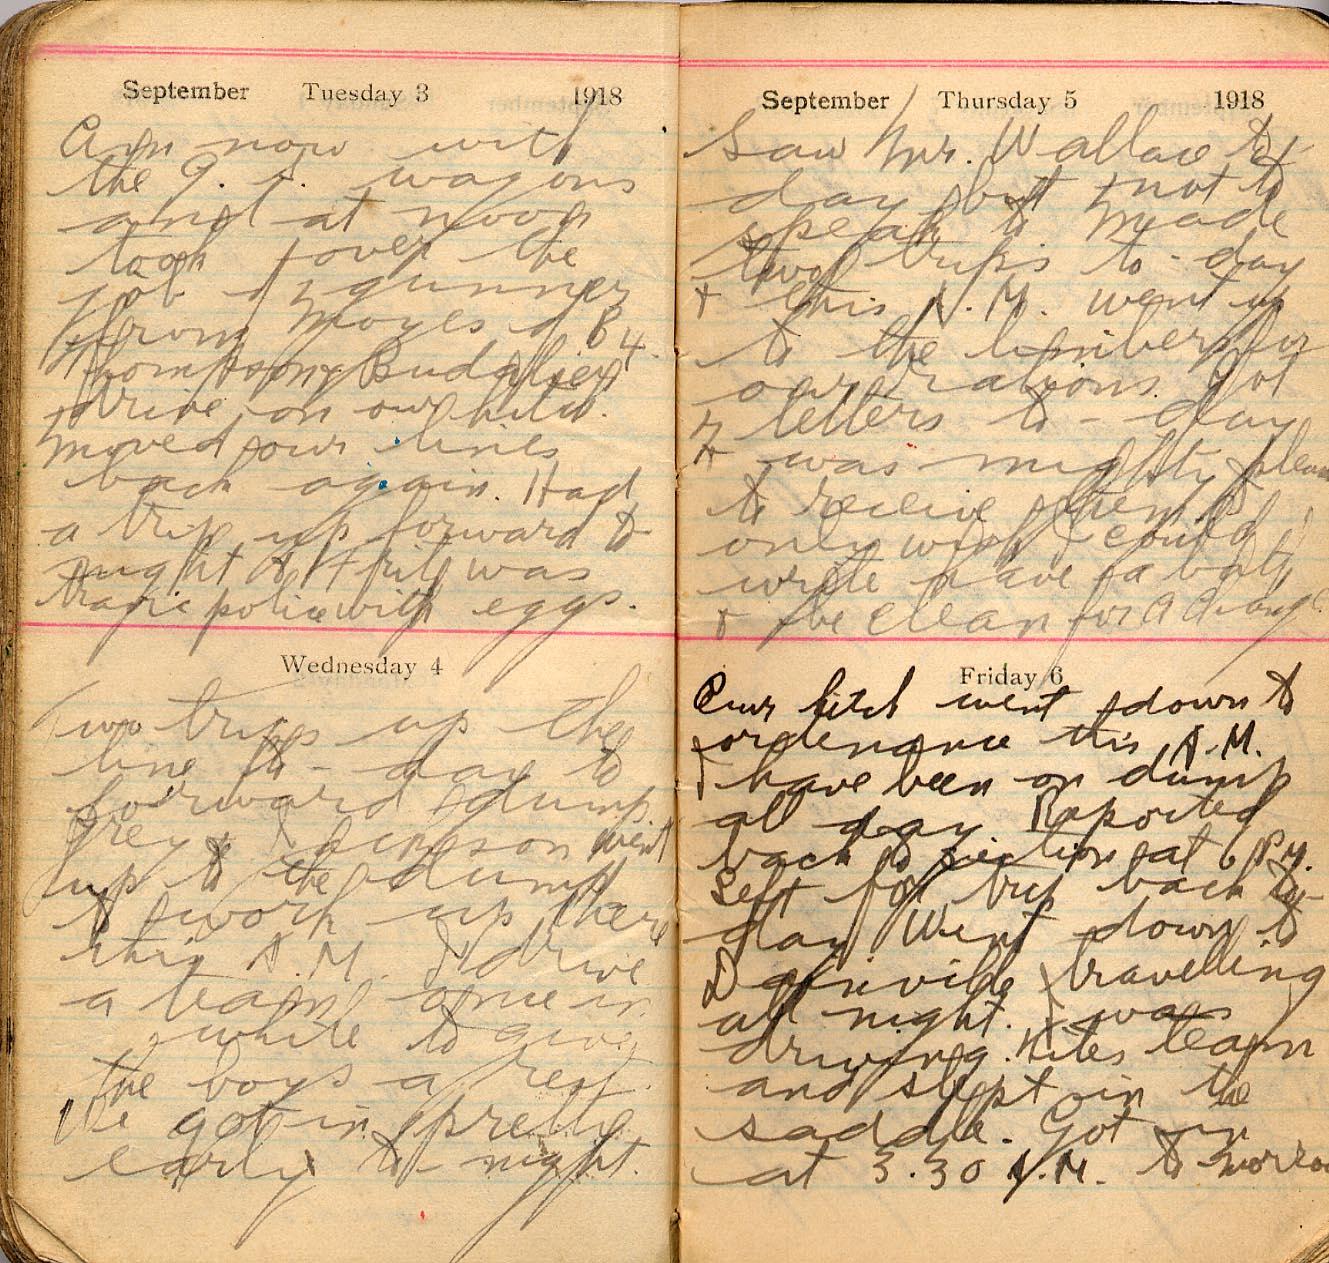 September Tuesday 3 1918
Am now with
the G. S. wagons
and at noon
took over the
job of gunner
from Moyes of B4.
Thompson & Budd
drive on our hitch.
Moved our lines
back again. Had
a trip up forward to
night & H was
police with eggs.
Wednesday 4
Two trips up the
line to-day to
forward dump.
Grey & Simpson went
up to the dump
to work up there
this A.M. I drive
a team once in
while to give
the boys a rest.
We got in pretty
early to-night.
September Thursday 5 1918
Saw Mr. Wallace to
day but not to
speak to Made
two trips to-day
+ this A.M. went up
to the limbers for
our rations. Got
7 letters to-day
+ was mighty pleased
to receive them I
only wish I could
write have a bath
+ be clean for a change
Friday 6
Our hitch went down to
ordenance this A.M.
I have been on dump
all day. Reported
back to section at 6 P.M.
Left for trip back to-
day Went down to
Dainville travelling
all night. I was
driving team
and slept in the
saddle. Got in
at 3.30 A.M. to-morrow